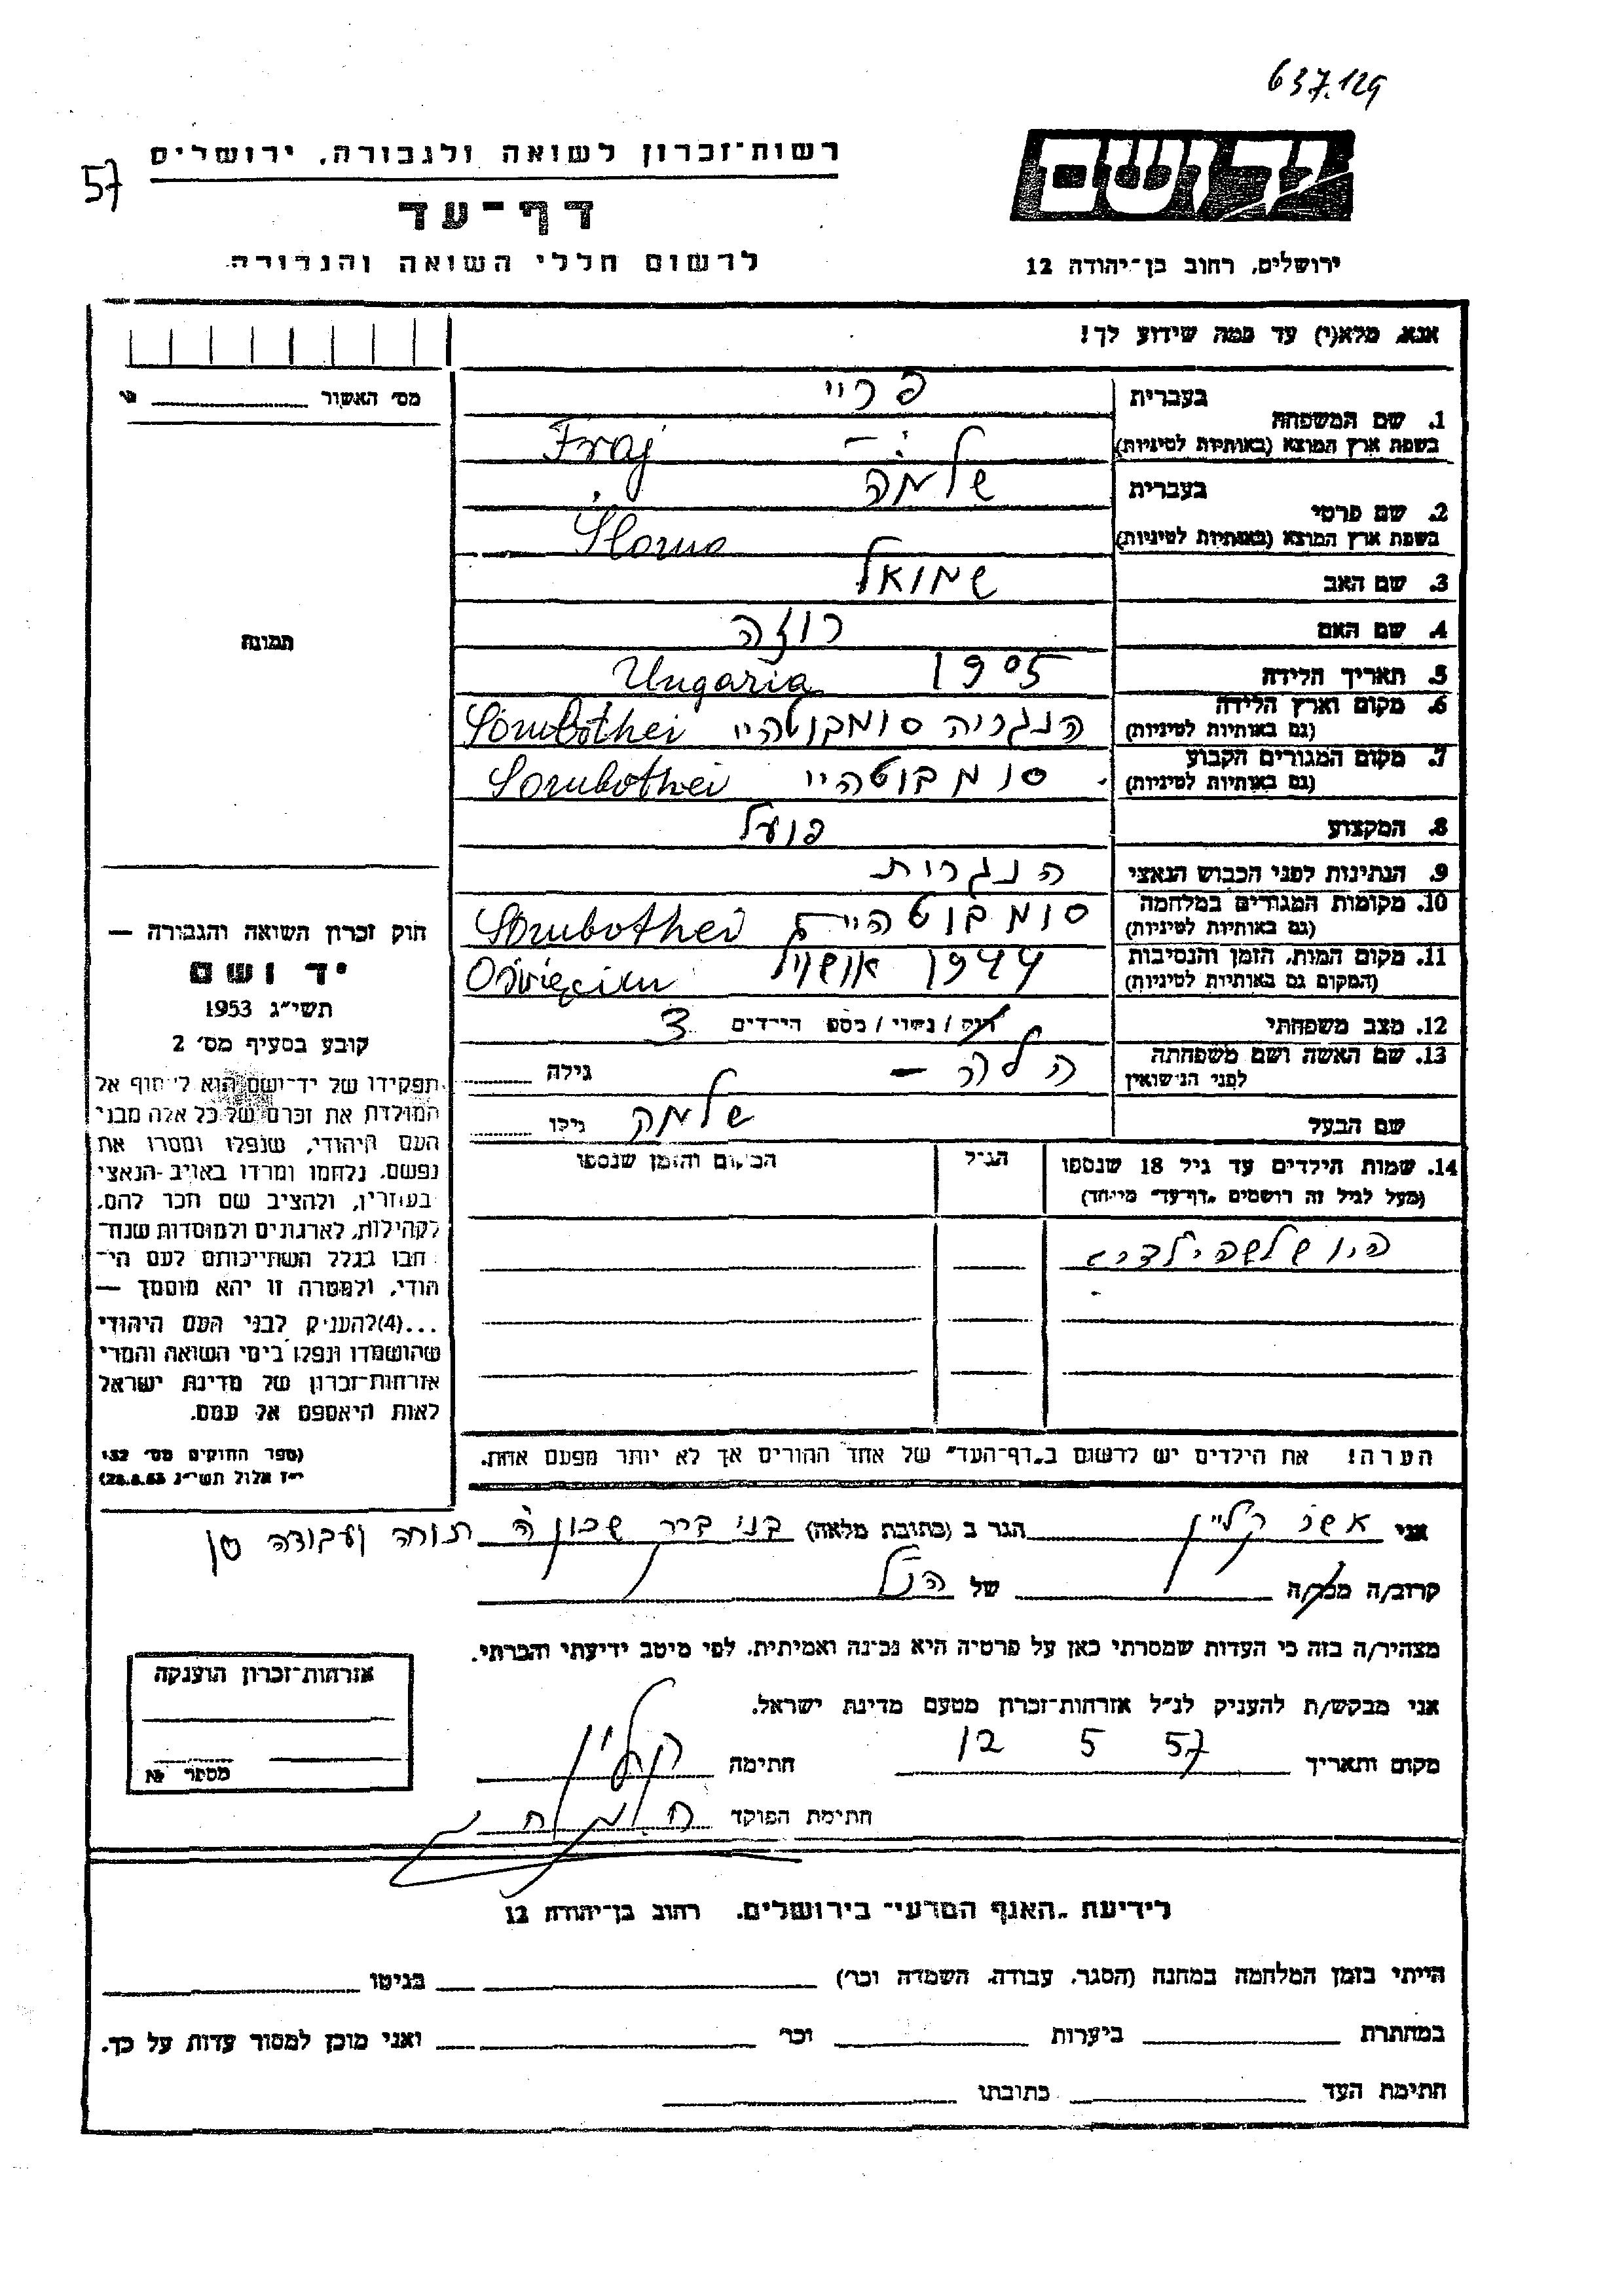 637.129
57
רשות־זכרון לשואה ולגבורה, ירושלים
דף־עד
לרשום חללי השואה והגבורה
יד ושם
ירושלים, רחוב בן־יהודה 12
אנא, מלא(י) עד כמה שידוע לך!
מס' האשור
1. שם המשפחה
בעברית
פריי
בשפת ארץ המוצא (באותיות לטיניות)
Fraj
2. שם פרטי
בעברית
שלמה
בשפת ארץ המוצא (באותיות לטיניות)
Šlomo
3. שם האב
שמואל
4. שם האם
רוזה
5. תאריך הלידה
1905
Ungaria
6. מקום וארץ הלידה
(גם באותיות לטיניות)
הנגריה סומבוטהיי Sombothei
7. מקום המגורים הקבוע
(גם באותיות לטיניות)
סומבוטהיי Sombothei
8. המקצוע
פועל
9. הנתינות לפני הכבוש הנאצי
הנגרית
10. מקומות המגורים במלחמה
(גם באותיות לטיניות)
סומבוטהיי Sombothei
11. מקום המות, הזמן והנסיבות
(המקום גם באותיות לטיניות)
1944 Oświęcim
12. מצב משפחתי
רוק / נשוי / מספר הילדים 3
13. שם האשה ושם משפחתה
לפני הנישואין
הלה —
גילה
שם הבעל
שלמה
גילו
14. שמות הילדים עד גיל 18 שנספו
(מעל לגיל זה רושמים „דף־עד" מיוחד)
הגיל
המקום והזמן שנספו
היו שלשה ילדים
הערה! את הילדים יש לרשום ב„דף־העד" של אחד ההורים אך לא יותר מפעם אחת.
תמונה
חוק זכרון השואה והגבורה —
יד ושם
תשי"ג 1953
קובע בסעיף מס' 2
תפקידו של יד־ושם הוא לאסוף אל
המולדת את זכרם של כל אלה מבני
העם היהודי, שנפלו ומסרו את
נפשם, נלחמו ומרדו באויב הנאצי
בעוזריו, ולהציב שם וזכר להם,
לקהילות, לארגונים ולמוסדות שנח־
רבו בגלל השתייכותם לעם הי־
הודי, ולמטרה זו יהא מוסמך —
...(4) להעניק לבני העם היהודי
שהושמדו ונפלו בימי השואה והמרי
אזרחות־זכרון של מדינת ישראל
לאות היאספם אל עמם.
(ספר החוקים מס' 132
י"ז אלול תשי"ג 28.8.53)
אני אשר קליין הגר ב (כתובת מלאה) בני ברק שכון ה תורה ועבודה
קרוב/ה מכר/ה של הנ"ל
מצהיר/ה בזה כי העדות שמסרתי כאן על פרטיה היא נכונה ואמיתית, לפי מיטב ידיעתי והכרתי.
אני מבקש/ת להעניק לנ"ל אזרחות־זכרון מטעם מדינת ישראל.
מקום ותאריך 12 5 57 חתימה קליין
חתימת הפוקד
אזרחות־זכרון הוענקה
מספר №
לידיעת „האגף המדעי" בירושלים, רחוב בן־יהודה 12
הייתי בזמן המלחמה במחנה (הסגר, עבודה, השמדה וכו') בגיטו
במחתרת ביערות וכו' ואני מוכן למסור עדות על כך.
חתימת העד כתובתו